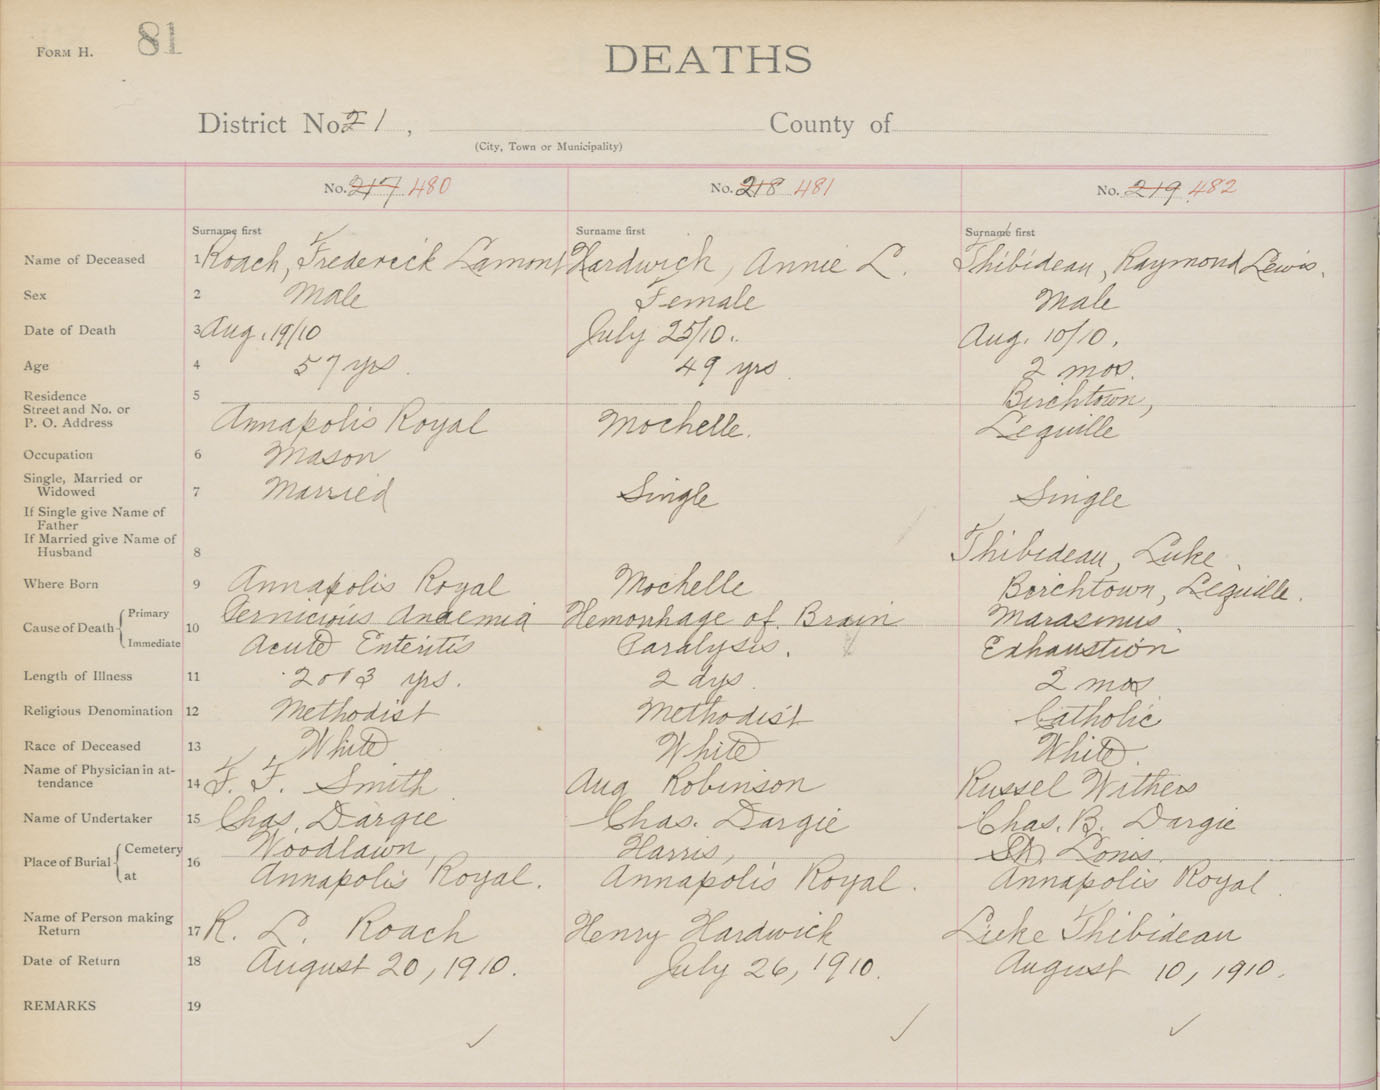 FORM H.
81
DEATHS
District No. 21,
County of
(City, Town or Municipality)
No. 217 480
No. 218 481
No. 219 482
Surname first
Surname first
Surname first
Name of Deceased 1 Roach, Frederick Lamont Hardwick, Annie L. Thibideau, Raymond Lewis.
Sex 2 Male Female Male
Date of Death 3 Aug. 19/10 July 25/10. Aug. 10/10.
Age 4 57 yrs. 49 yrs 2 mos.
Residence 5 Birchtown,
Street and No. or
P. O. Address Annapolis Royal Mochelle. Lequille
Occupation 6 Mason
Single, Married or
Widowed 7 Married Single Single
If Single give Name of
Father
If Married give Name of
Husband 8 Thibideau, Luke
Where Born 9 Annapolis Royal Mochelle Birchtown, Lequille.
Cause of Death { Primary Pernicious Anaemia Hemorrhage of Brain Marasmus
10
Immediate Acute Enteritis Paralysis. Exhaustion
Length of Illness 11 2 or 3 yrs. 2 dys. 2 mos
Religious Denomination 12 Methodist Methodist Catholic
Race of Deceased 13 White White White.
Name of Physician in at-
tendance 14 F. F. Smith Aug Robinson Russel Withers
Name of Undertaker 15 Chas. Dargie Chas. Dargie Chas. B. Dargie
Place of Burial { Cemetery Woodlawn, Harris, St. Louis.
16
at Annapolis Royal. Annapolis Royal. Annapolis Royal
Name of Person making
Return 17 R. L. Roach Henry Hardwick Luke Thibideau
Date of Return 18 August 20, 1910. July 26, 1910. August 10, 1910.
REMARKS 19